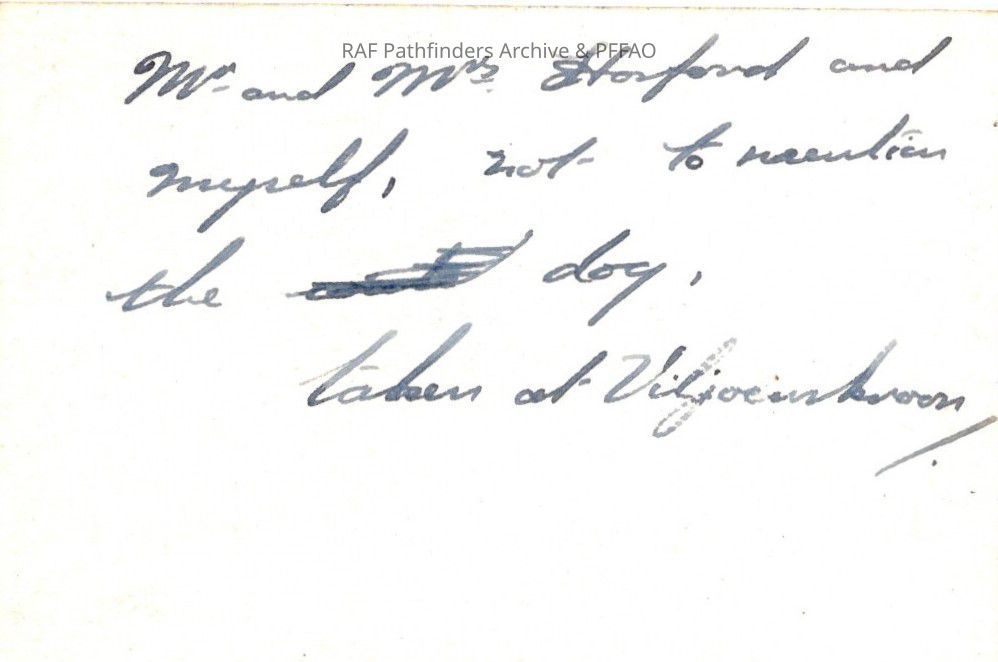 RAF Pathfinders Archive & PFFAO
Mr and Mrs and
myself, not to mention
the dog,
taken at Viljoenskroon